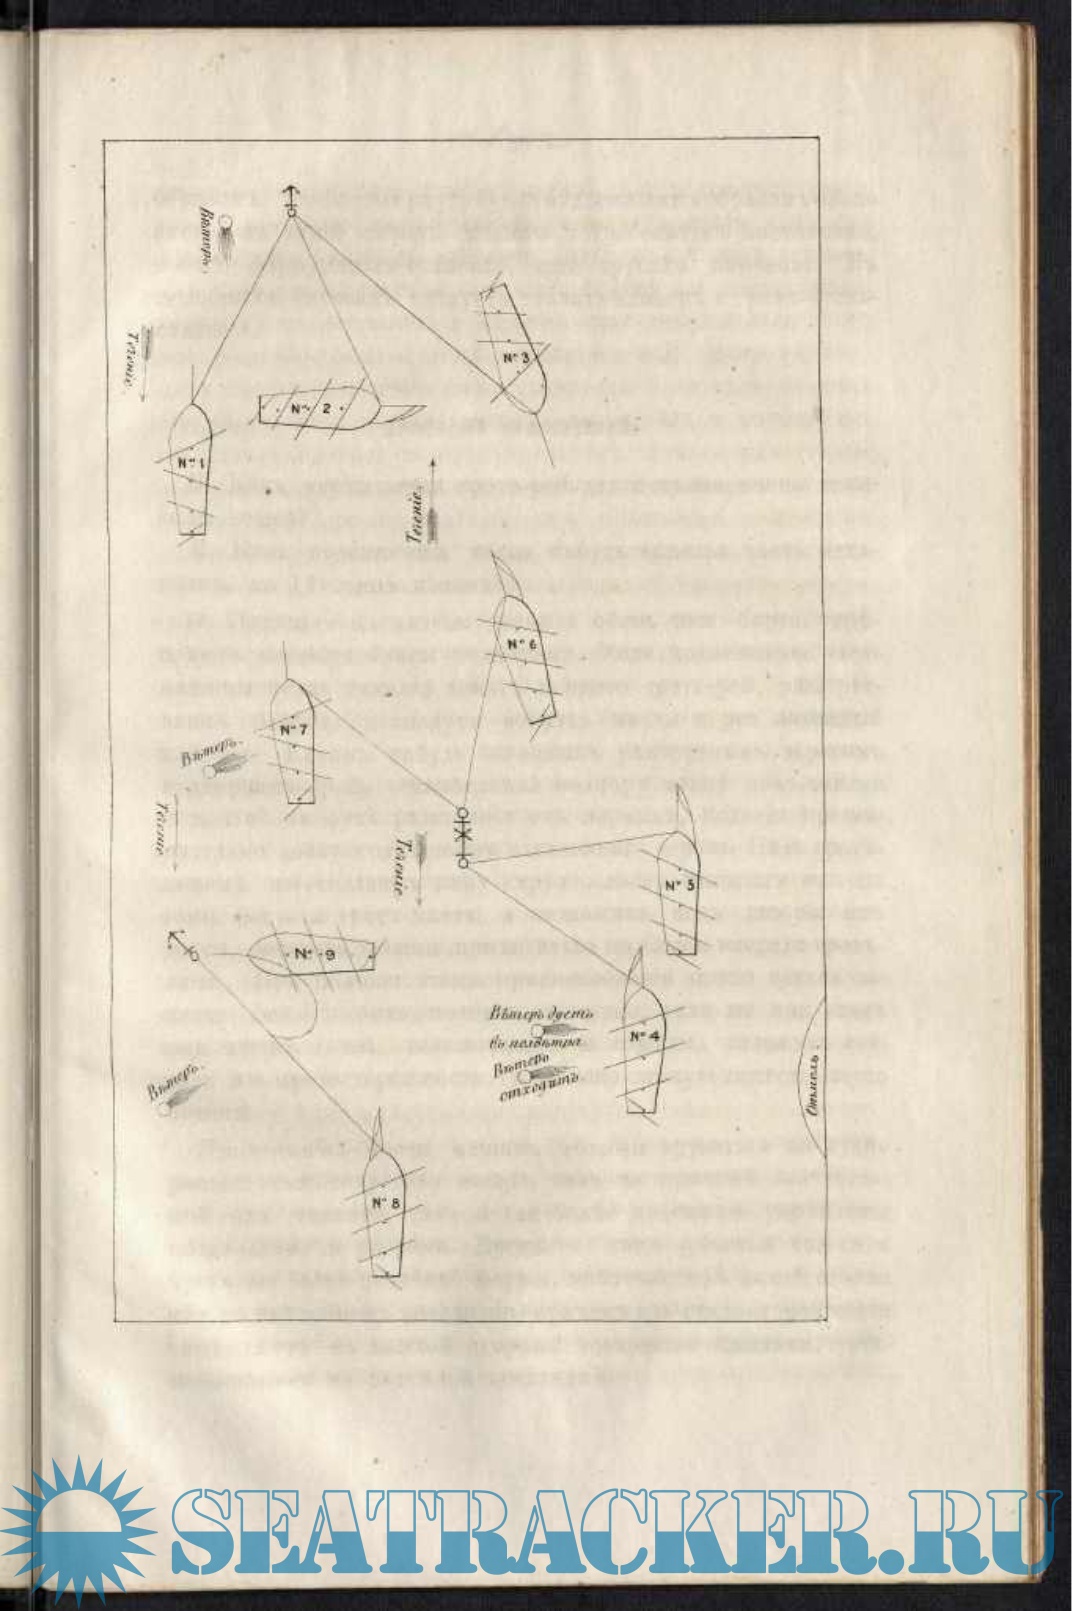 Вѣтеръ.
Теченіе.
№ 3
№ 2
№ 1
Теченіе.
№ 6
№ 7
Вѣтеръ.
Теченіе
Теченіе
№ 5
№ 9
Вѣтеръ дуетъ
въ полвѣтра
Вѣтеръ
отходитъ
№ 4
Отмель
Вѣтеръ.
№ 8
SEATRACKER.RU